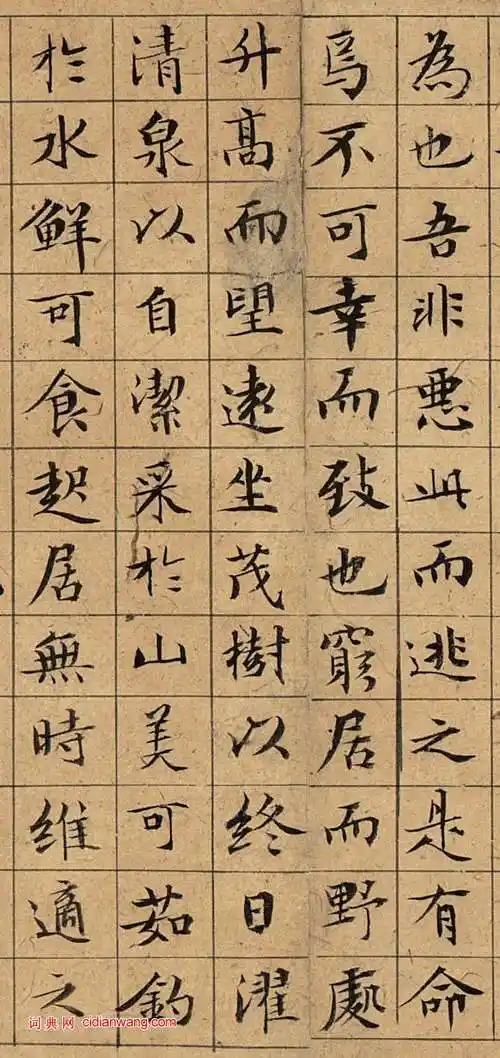 為也吾非惡此而逃之是有命
焉不可幸而致也窮居而野處
升高而望遠坐茂樹以終日濯
清泉以自潔采於山美可茹釣
於水鮮可食起居無時維適之
词典网 cidianwang.com